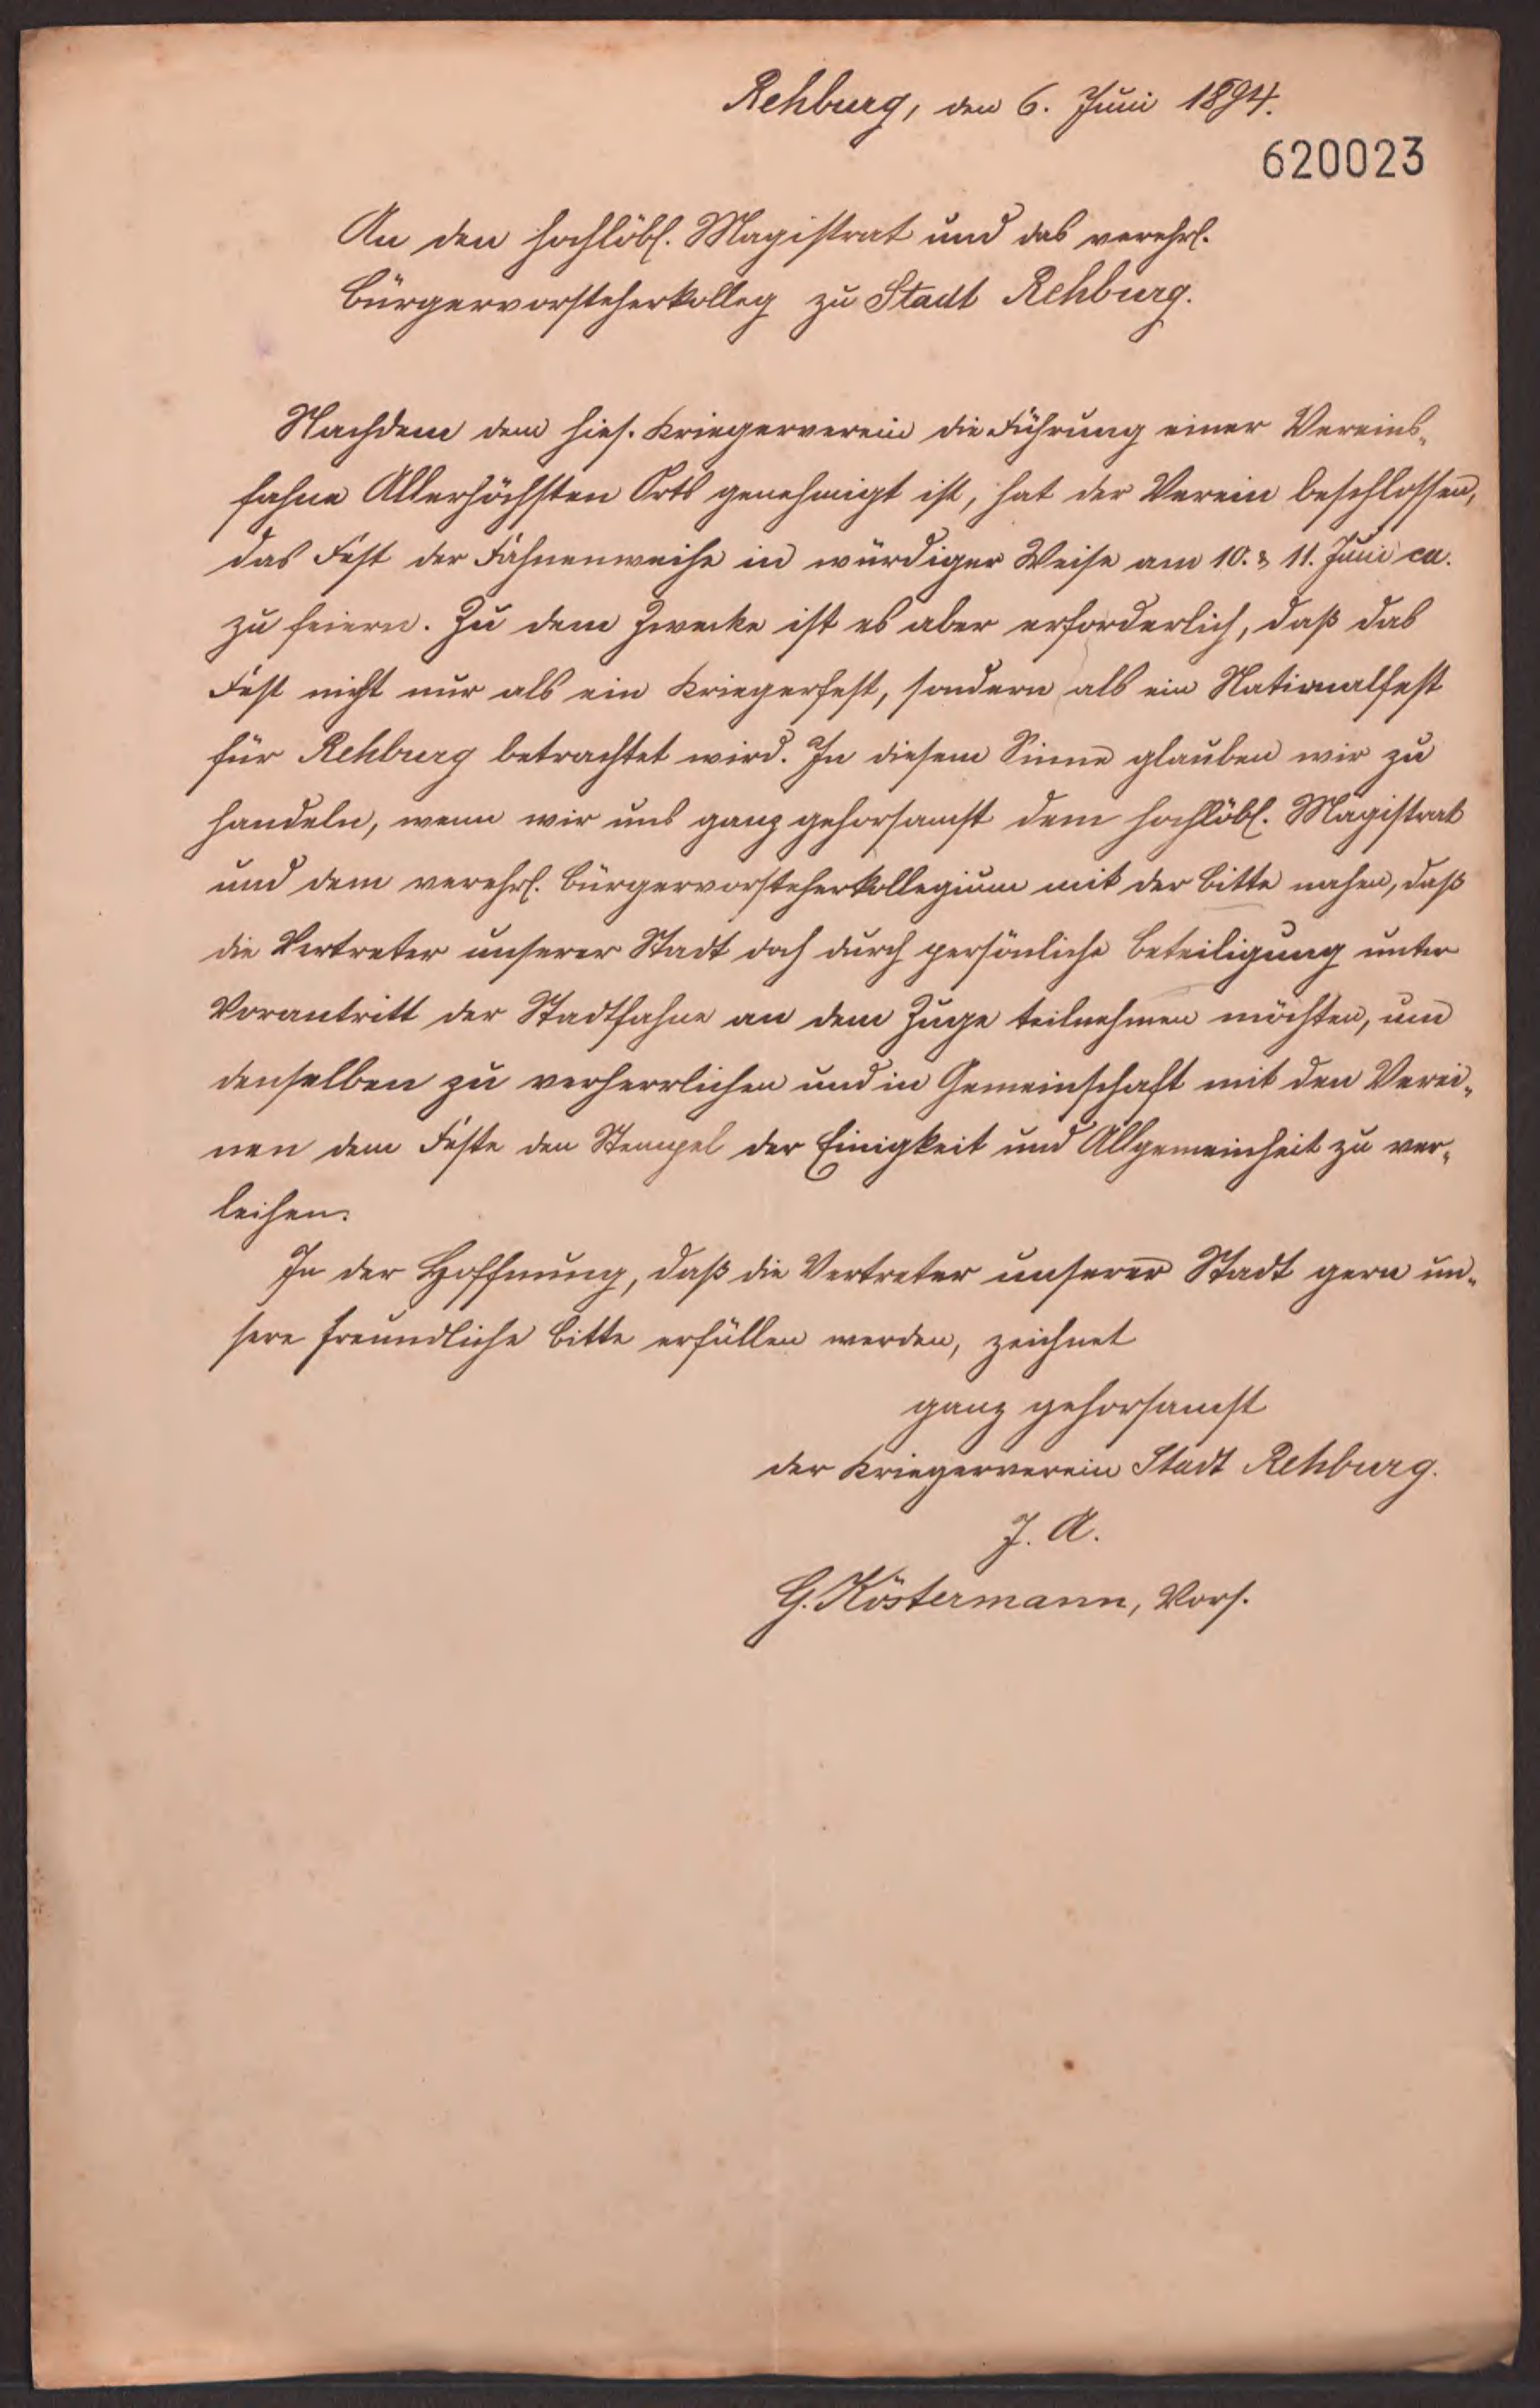 Rehburg, den 6. Juni 1894.
620023
An den hochlöbl. Magistrat und das verehrl.
Bürgervorsteherkolleg zu Stadt Rehburg.
Nachdem dem hies. Kriegerverein die Führung einer Vereins-
fahne Allerhöchsten Orts genehmigt ist, hat der Verein beschlossen,
das Fest der Fahnenweihe in würdiger Weise am 10. & 11. Juni ca.
zu feiern. Zu dem Zwecke ist es aber erforderlich, daß das
Fest nicht nur als ein Kriegerfest, sondern als ein Nationalfest
für Rehburg betrachtet wird. In diesem Sinne glauben wir zu
handeln, wenn wir uns ganz gehorsamst dem hochlöbl. Magistrat
und dem verehrl. Bürgervorsteherkollegium mit der Bitte nahen, daß
die Vertreter unserer Stadt doch durch persönliche Beteiligung unter
Vorantritt der Stadtfahne an dem Zuge teilnehmen möchten, um
denselben zu verherrlichen und in Gemeinschaft mit den Verei-
nen dem Feste den Stempel der Einigkeit und Allgemeinheit zu ver-
leihen.
In der Hoffnung, daß die Vertreter unserer Stadt gern un-
sere freundliche Bitte erfüllen werden, zeichnet
ganz gehorsamst
der Kriegerverein Stadt Rehburg.
J. A.
G. Köstermann, Vors.